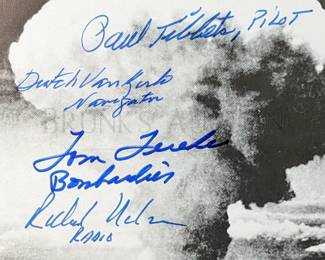 Paul Tibbets, PILOT
Dutch Van Kirk
Navigator
Tom Ferebee
Bombardier
Richard Nelson
RADIO